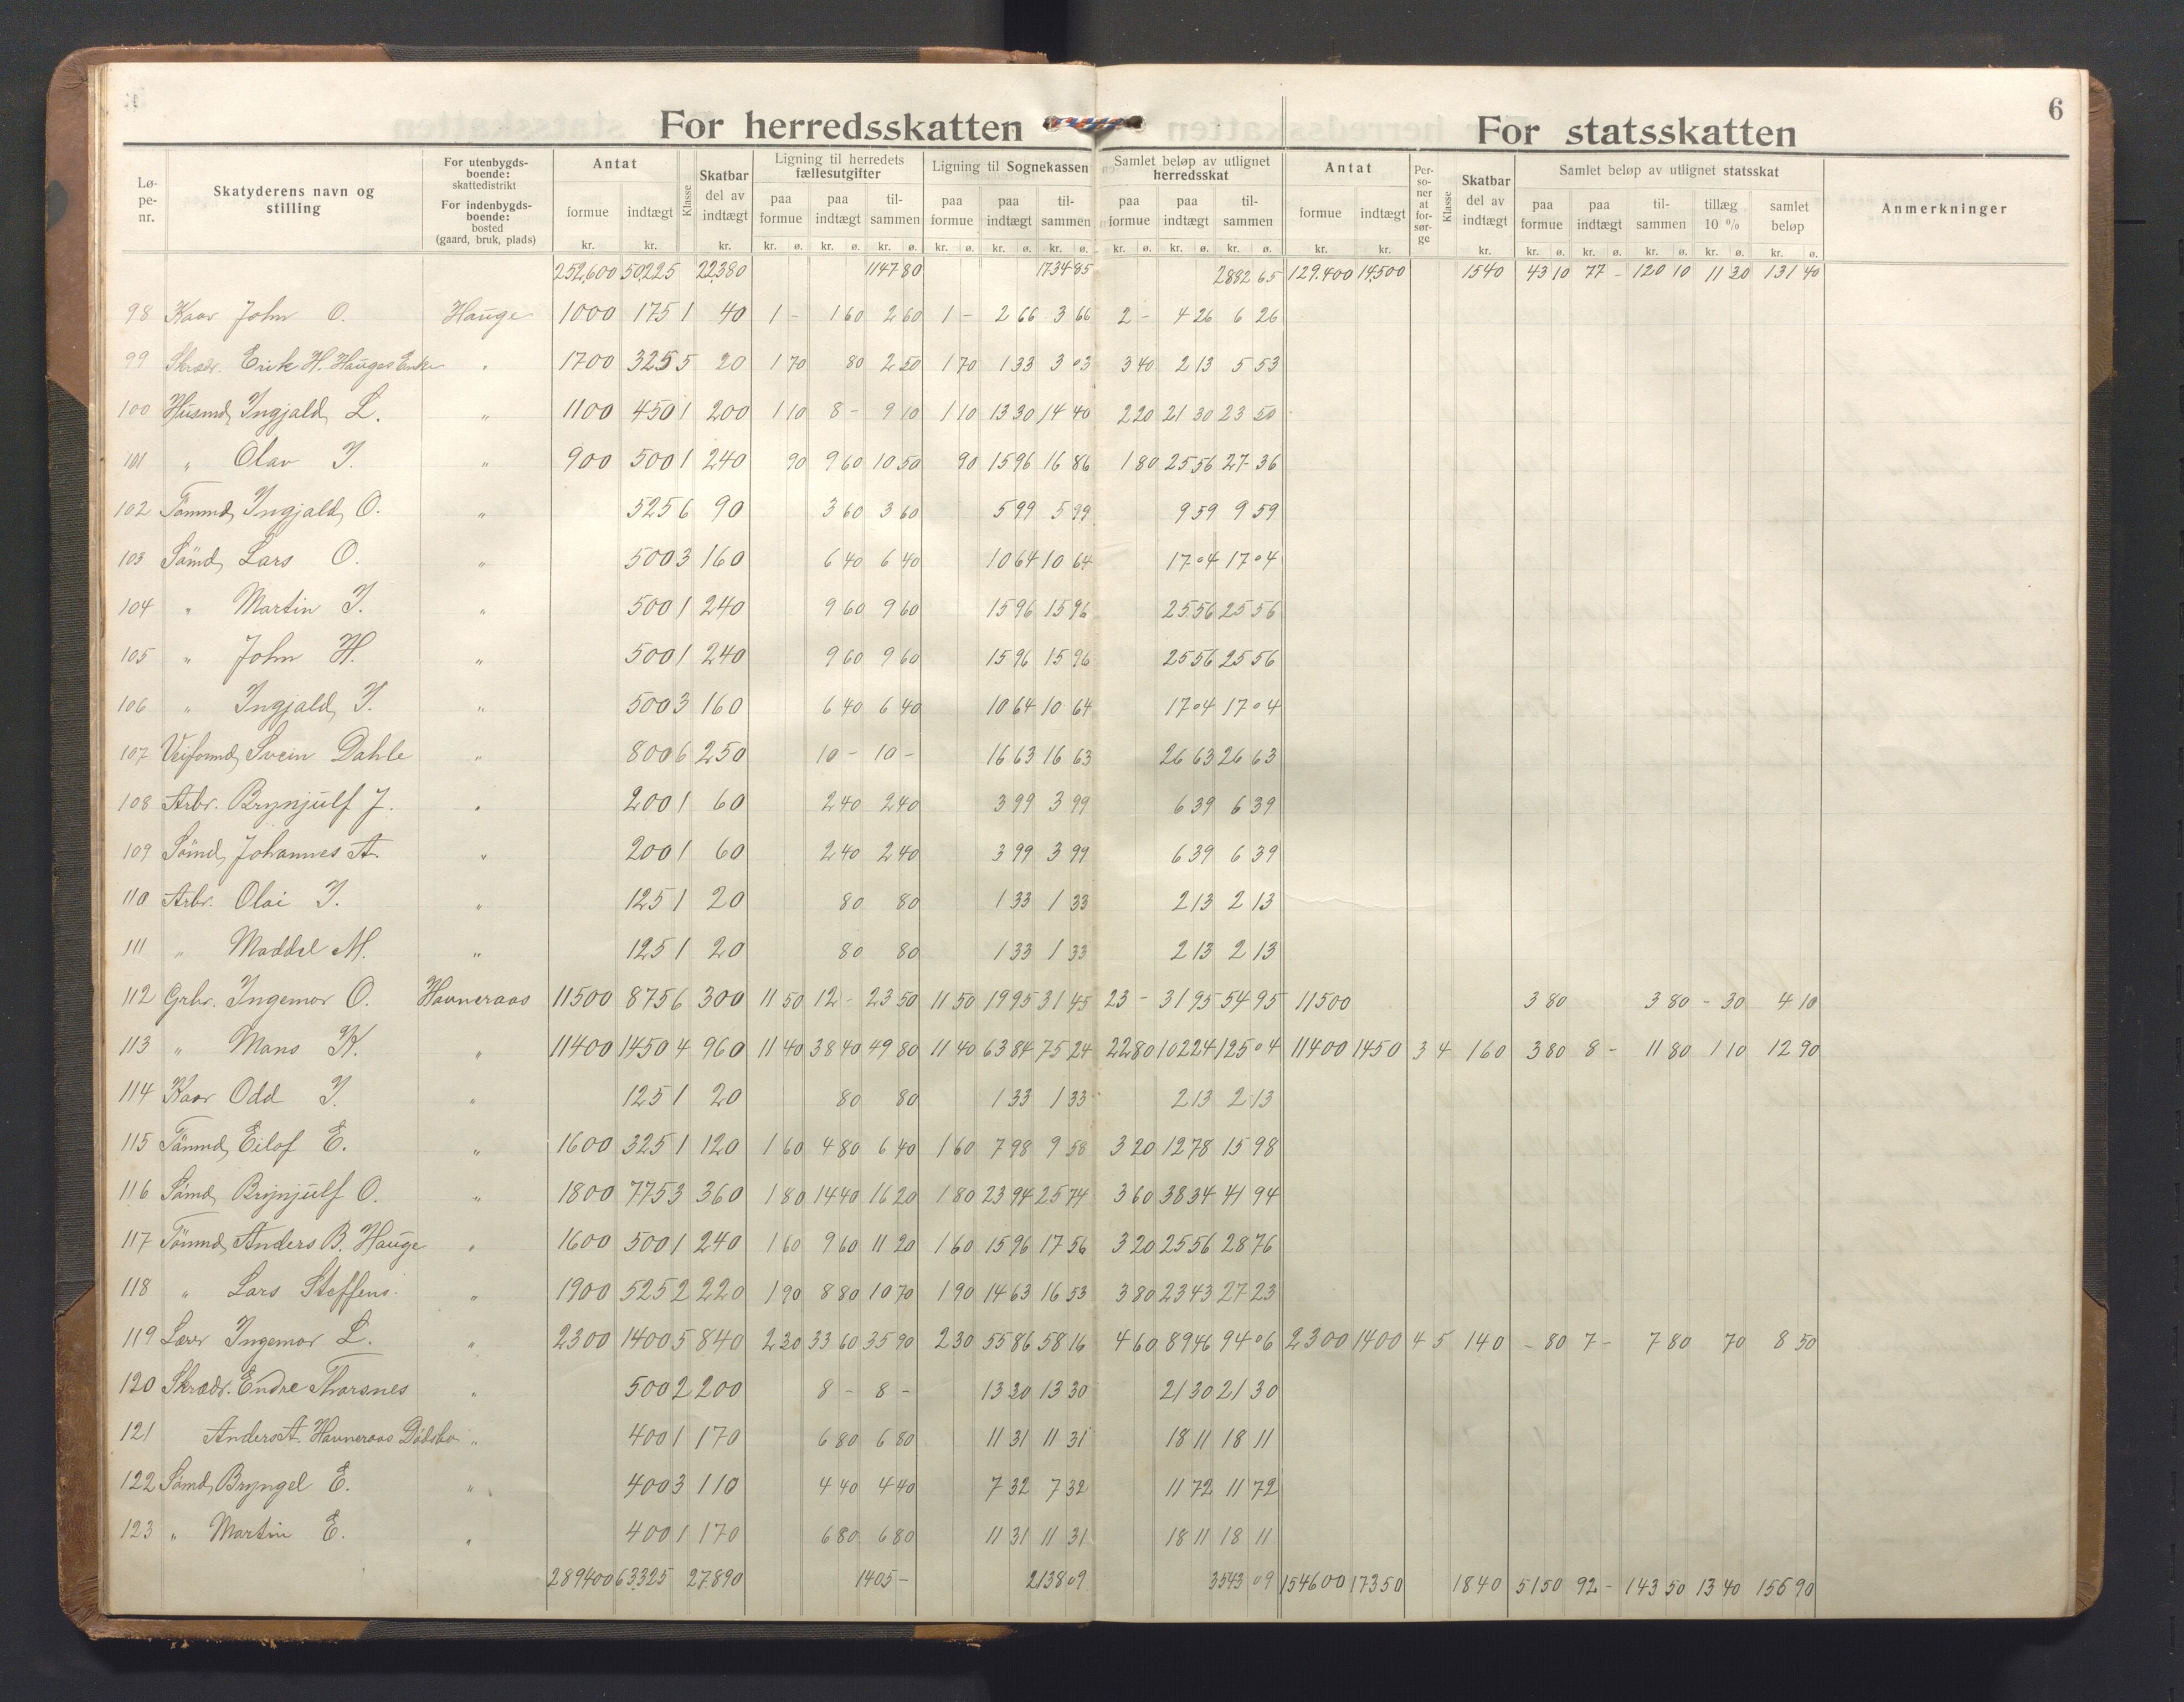 For herredsskatten For statsskatten 6
Lø-pe-nr. Skatyderens navn og stilling For utenbygds-boende: skattedistrikt For indenbygds-boende: bosted (gaard, bruk, plads) Antat formue kr. indtægt kr. Klasse Skatbar del av indtægt kr. Ligning til herredets fællesutgifter paa formue kr. ø. paa indtægt kr. ø. til-sammen kr. ø. Ligning til Sognekassen paa formue kr. ø. paa indtægt kr. ø. til-sammen kr. ø. Samlet beløp av utlignet herredsskat paa formue kr. ø. paa indtægt kr. ø. til-sammen kr. ø. Antat formue kr. indtægt kr. Per-so-ner at for-sør-ge Klasse Skatbar del av indtægt kr. Samlet beløp av utlignet statsskat paa formue kr. ø. paa indtægt kr. ø. til-sammen kr. ø. tillæg 10 % kr. ø. samlet beløp kr. ø. Anmerkninger
252,600 50,225 22,380 1147 80 1734 85 2882 65 129.400 14,500 1540 43 10 77 - 120 10 11 30 131 40
98 Kaar John O. Hauge 1000 175 1 40 1 - 1 60 2 60 1 - 2 66 3 66 2 - 4 26 6 26
99 Skræd. Erik H. Hauges Enke " 1700 325 5 20 1 70 80 2 50 1 70 1 33 3 03 3 40 2 13 5 53
100 Husmd, Ingjald L. " 1100 450 1 200 1 10 8 - 9 10 1 10 13 30 14 40 2 20 21 30 23 50
101 " Olav I. " 900 500 1 240 90 9 60 10 50 90 15 96 16 86 1 80 25 56 27 36
102 Tømmd, Ingjald O. " 525 6 90 3 60 3 60 5 99 5 99 9 59 9 59
103 Sømd, Lars O. " 500 3 160 6 40 6 40 10 64 10 64 17 04 17 04
104 " Martin I. " 500 1 240 9 60 9 60 15 96 15 96 25 56 25 56
105 " John H. " 500 1 240 9 60 9 60 15 96 15 96 25 56 25 56
106 " Ingjald I. " 500 3 160 6 40 6 40 10 64 10 64 17 04 17 04
107 Veiformd, Svein Dahle " 800 6 250 10 - 10 - 16 63 16 63 26 63 26 63
108 Arbr. Brynjulf J. " 200 1 60 2 40 2 40 3 99 3 99 6 39 6 39
109 Sømd, Johannes A. " 200 1 60 2 40 2 40 3 99 3 99 6 39 6 39
110 Arbr. Olai I. " 125 1 20 80 80 1 33 1 33 2 13 2 13
111 " Maddel M. " 125 1 20 80 80 1 33 1 33 2 13 2 13
112 Grbr. Ingemar O. Havneraas 11500 875 6 300 11 50 12 - 23 50 11 50 19 95 31 45 23 - 31 95 54 95 11500 3 80 3 80 - 30 4 10
113 " Mans K. " 11400 1450 4 960 11 40 38 40 49 80 11 40 63 84 75 24 22 80 102 24 125 04 11400 1450 3 4 160 3 80 8 - 11 80 1 10 12 90
114 Kaar Odd I. " 125 1 20 80 80 1 33 1 33 2 13 2 13
115 Tømmd, Eilof E. " 1600 325 1 120 1 60 4 80 6 40 1 60 7 98 9 58 3 20 12 78 15 98
116 Sømd, Brynjulf O. " 1800 775 3 360 1 80 14 40 16 20 1 80 23 94 25 74 3 60 38 34 41 94
117 Tømmd, Anders B. Hauge " 1600 500 1 240 1 60 9 60 11 20 1 60 15 96 17 56 3 20 25 56 28 76
118 " Lars Steffens. " 1900 525 2 220 1 90 8 80 10 70 1 90 14 63 16 53 3 80 23 43 27 23
119 Lærr Ingemar L. " 2300 1400 5 840 2 30 33 60 35 90 2 30 55 86 58 16 4 60 89 46 94 06 2300 1400 4 5 140 - 80 7 - 7 80 70 8 50
120 Skrædr. Endre Thorsnes " 500 2 200 8 - 8 - 13 30 13 30 21 30 21 30
121 Anders A. Havneraas Dødsbo " 400 1 170 6 80 6 80 11 31 11 31 18 11 18 11
122 Sømd, Bryngel E. " 400 3 110 4 40 4 40 7 32 7 32 11 72 11 72
123 " Martin E. " 400 1 170 6 80 6 80 11 31 11 31 18 11 18 11
289400 63,325 27,890 1405 - 2138 09 3543 09 154600 17350 1840 51 50 92 - 143 50 13 40 156 90